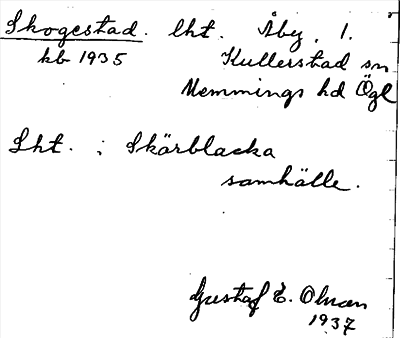 Skogestad. lht. Åby, 1.
kb 1935 Kullerstad sn
Memmings hd Ögl
Lht. i Skärblacka
samhälle.
Gustaf E. Olman
1937